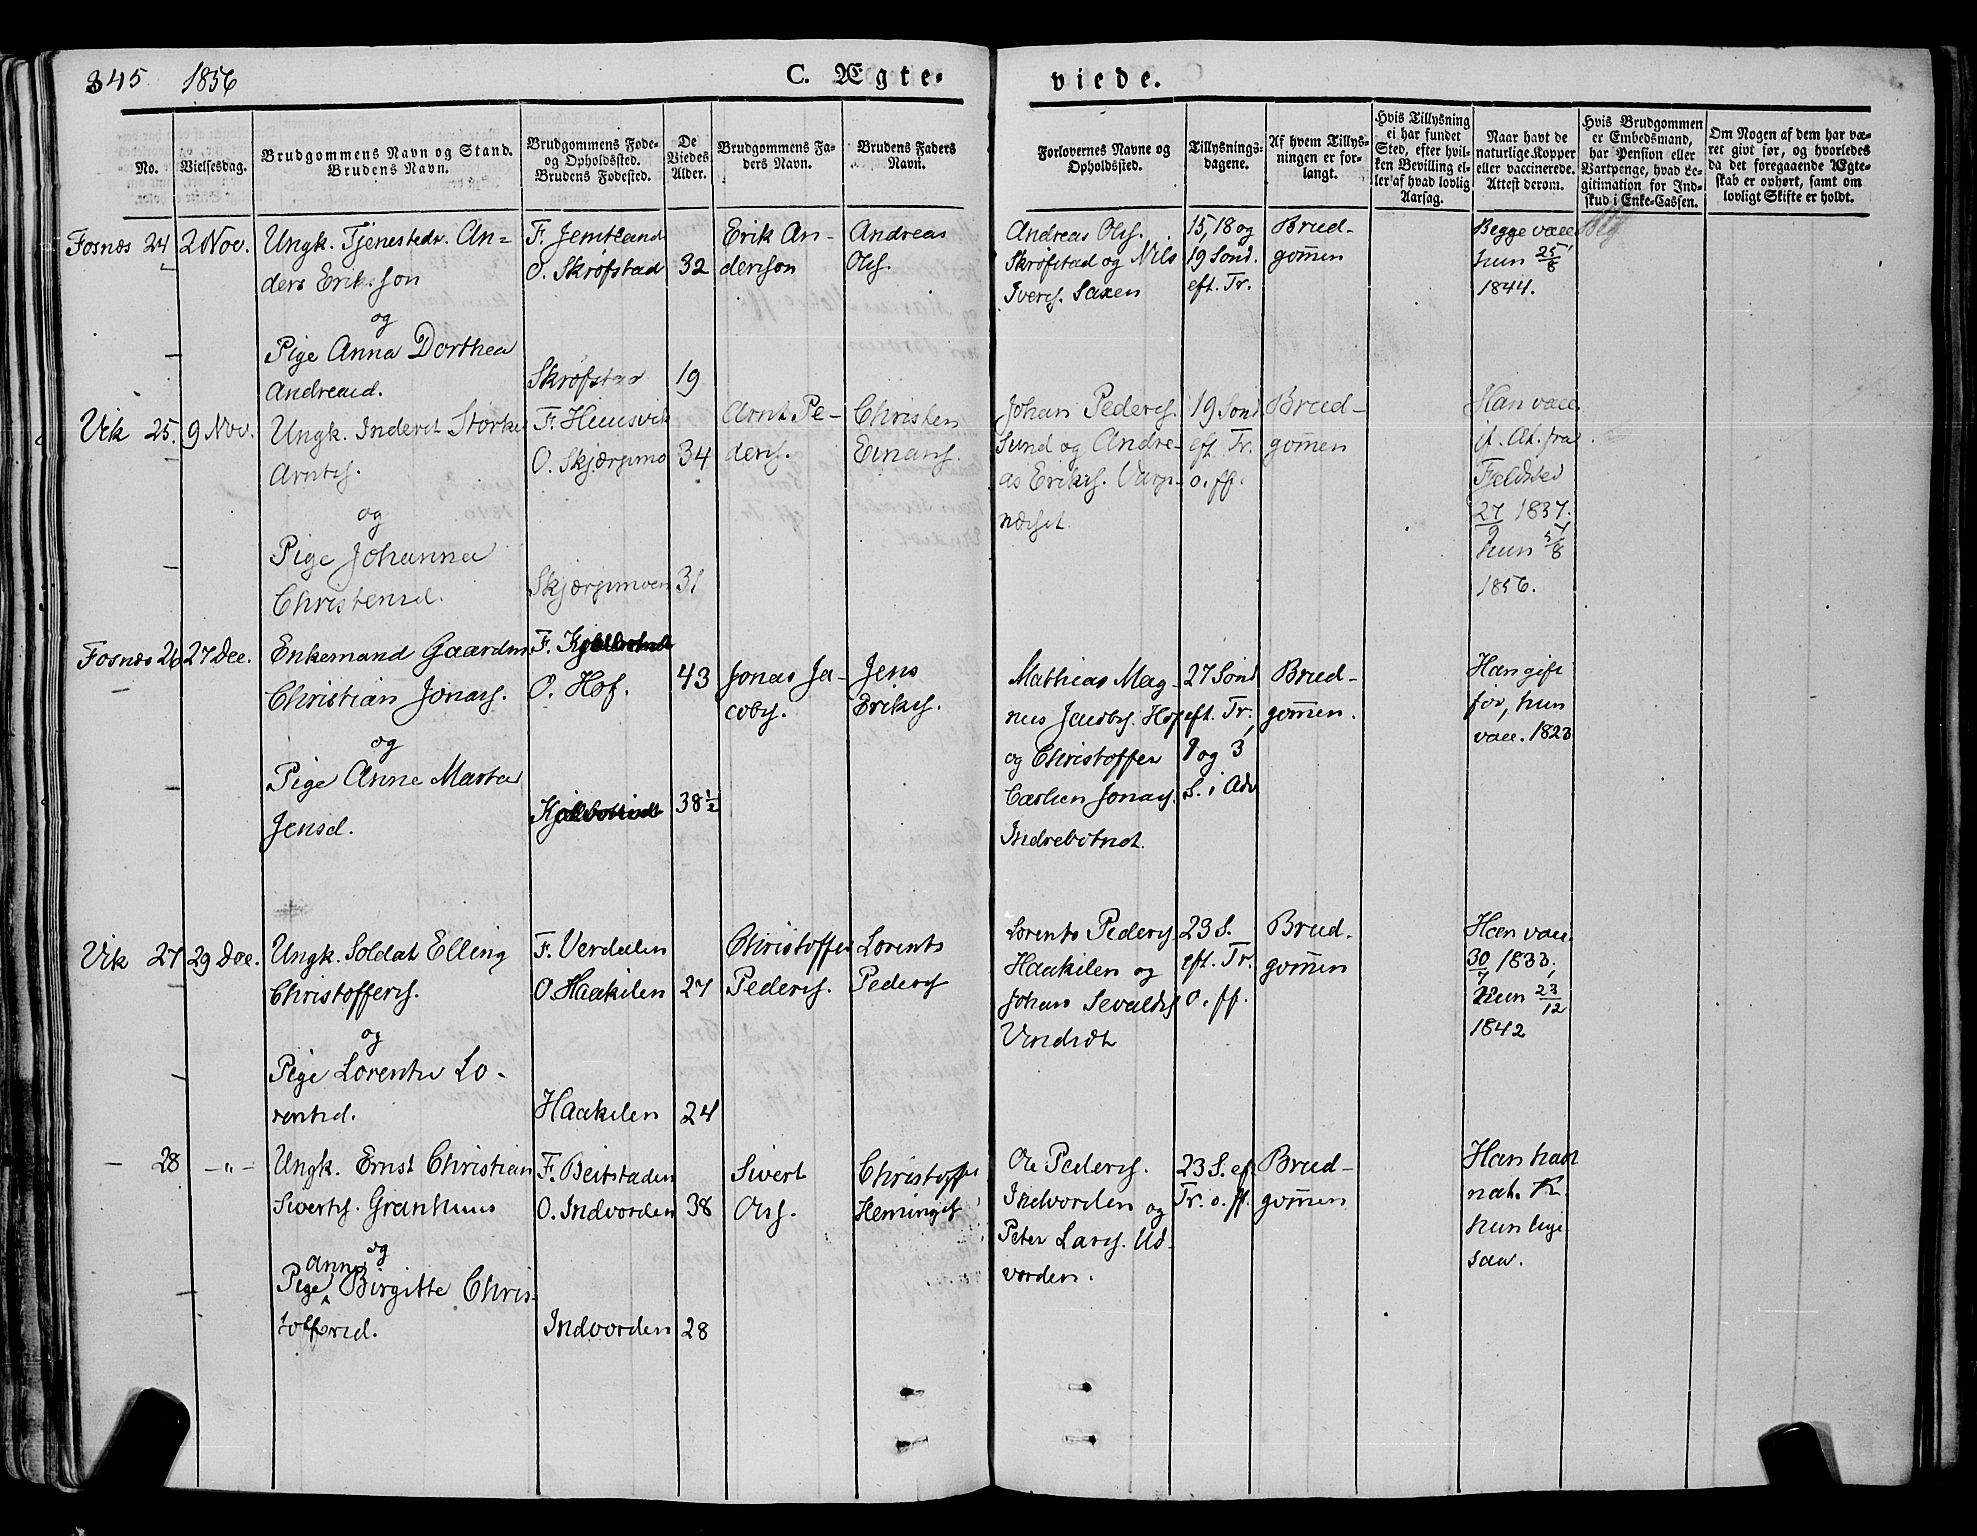 345 1856 C. Ægte-
viede.
No.
Vielsesdag.
Brudgommens Navn og Stand.
Brudens Navn.
Brudgommens Føde-
og Opholdssted.
Brudens Fødested.
De
Viedes
Alder.
Brudgommens Fa-
ders Navn.
Brudens Faders
Navn.
Forlovernes Navne og
Opholdssted.
Tillysnings-
dagene.
Af hvem Tillys-
ningen er for-
langt.
Hvis Tillysning
ei har fundet
Sted, efter hvil-
ken Bevilling el-
ler af hvad lovlig
Aarsag.
Naar havt de
naturlige Kopper
eller vaccinerede.
Attest derom.
Hvis Brudgommen
er Embedsmand,
har Pension eller
Vartpenge, hvad Le-
gitimation for Ind-
skud i Enke-Cassen.
Om Nogen af dem har væ-
ret givt før, og hvorledes
da det foregaaende Ægte-
skab er ophørt, samt om
lovligt Skifte er holdt.
Fosnæs 24 2 Nov.
Ungk. Tjenestedr. An-
ders Erik.son
og
Pige Anna Dorthea
Andreasd.
F. Jemtland
O. Skrøfstad
Skrøfstad
32
19
Erik An-
derson
Andreas
Ols.
Andreas Ols.
Skrøfstad og Nils
Ivers. Saxen
15, 18 og
19 Sond.
eft. Tr.
Brud-
gom̄en
Begge vacc.
hun 25/8
1844.
Vik 25. 9 Nov.
Ungk. Inderet Storker
Arnts.
og
Pige Johanna
Christensd.
F. Hemsvik
O. Skjærpmo
Skjærpmoen
34
31
Arnt Pe-
ders.
Christen
Einars.
Johan Peders.
Sund og Andre-
as Eriks. Varp-
næset.
19 Sond
eft. Tr.
o. ff.
Brud-
gom̄en
Han vacc.
if. At. fra
27/9 1837.
hun
1856.
Fosnæs 26 27 Dec.
Enkemand Gaardm.
Christian Jonas.
og
Pige Anne Marta
Jensd.
F.
O. Hof.
43
38 1/2
Jonas Ja-
cobs.
Jens
Eriks.
Mathias Mag-
nus Jacobs. Hof
og Christoffer
Carlien Jonas.
Indrebotnet.
27 Sond
eft. Tr.,
1 og 3
S. i Adv
Brud-
gom̄en.
Han gift
før, hun
vacc. 1823
Vik 27 29 Dec.
Ungk. Soldat Elling
Christoffers.
og
Pige Lorentse Lo-
rentsd.
F. Verdalen
O. Haakilen
Haakilen
27
24
Christoffer
Peders.
Lorents
Peders
Lorents Peders.
Haakilen og
Johan Sevalds
23 S.
eft. Tr.
o. ff.
Brud-
gom̄en
Han vacc.
30/7 1833,
hun 23/12
1842
– 28 –"–
Ungk. Ernst Christian
Siverts. Granhuus
og
Pige Anna Birgitte Chris-
tofersd.
F. Beitstaden
O. Indvorden
Indvorden
38
28
Sivert
Ols.
Christoffer
Hemings
Ole Peders.
Indvorden og
Peter Lars. Ud-
vorden.
23 S. eft
Tr. o. ff.
Brud-
gom̄en
Han havt
nat. K.
hun lige
saa.